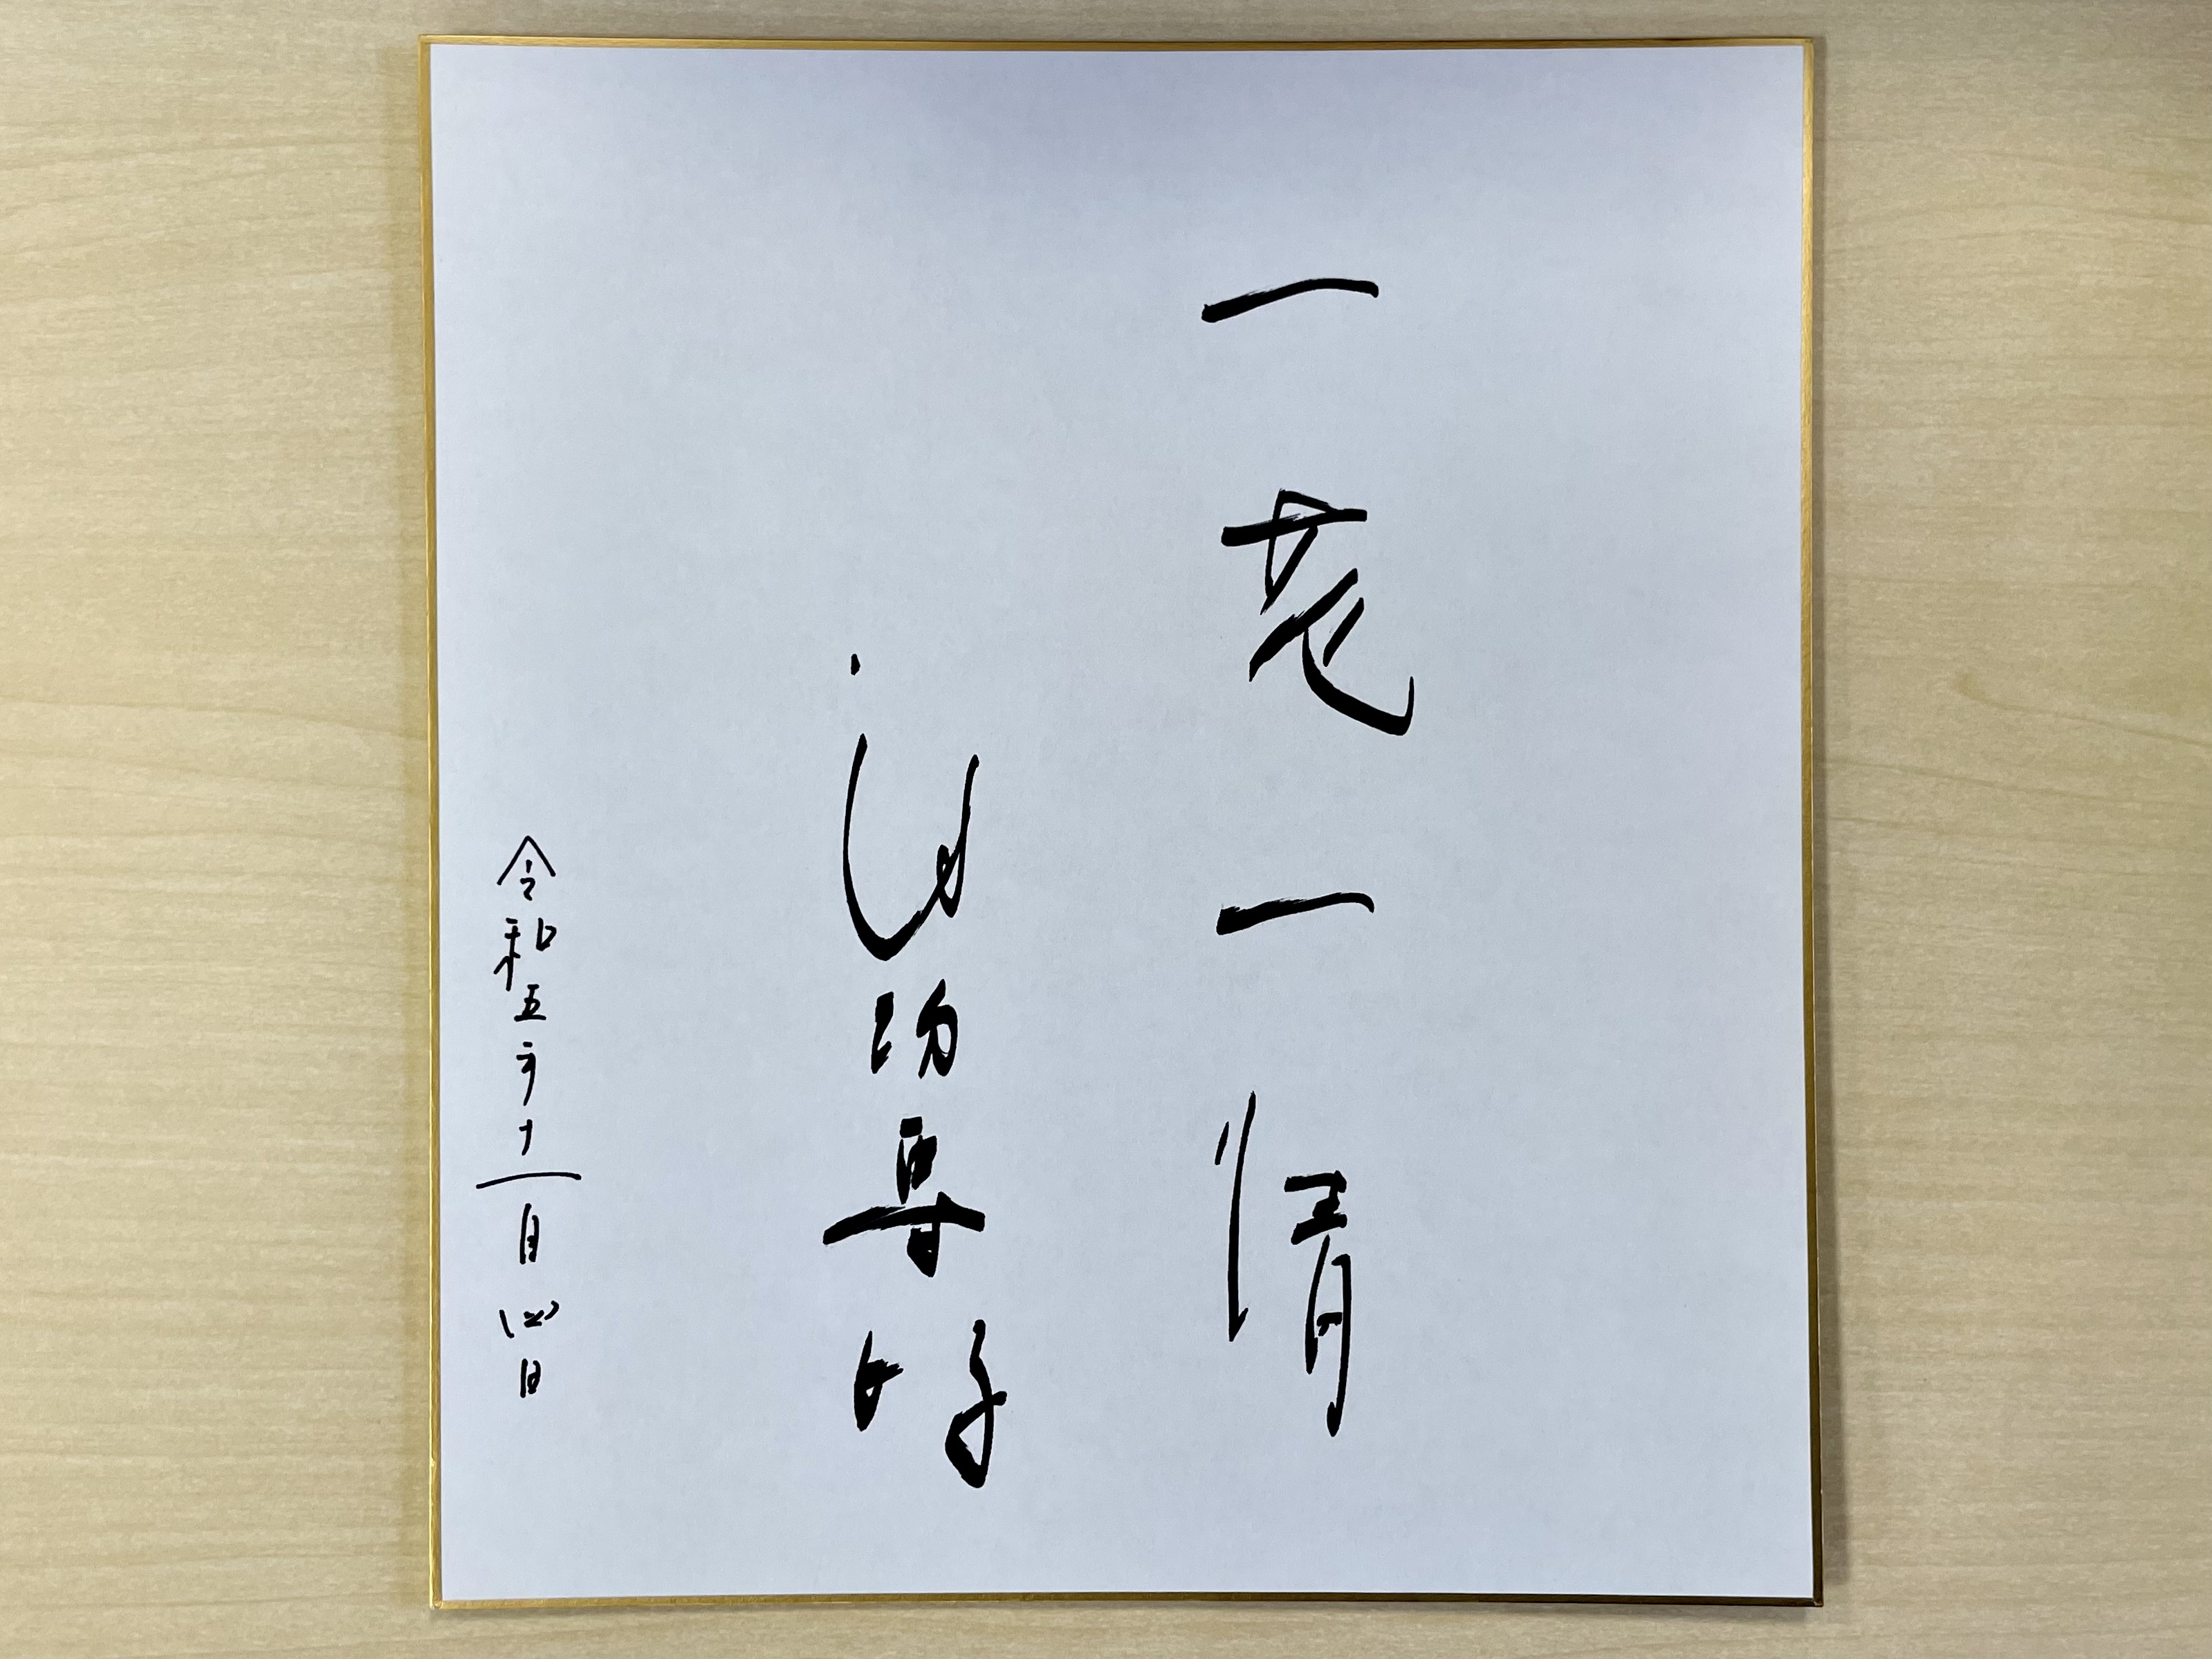 一花一情
池坊専好
令和五年十一月四日